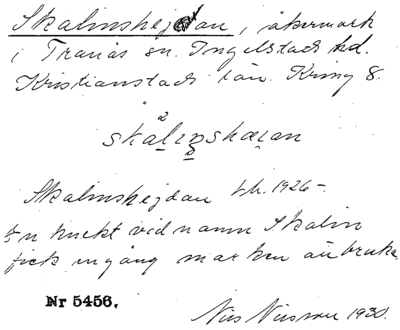 Skalinshejdan, åkermark
i Tranås sn. Ingelstads hd.
Kristianstads län. Krmg 8.
skaliŋshæian
Skalinshejdan Lh. 1926-
En knekt vid namn Skalin
fick en gång marken att bruka
Nr 5456.
Nils Nilsson 1930.